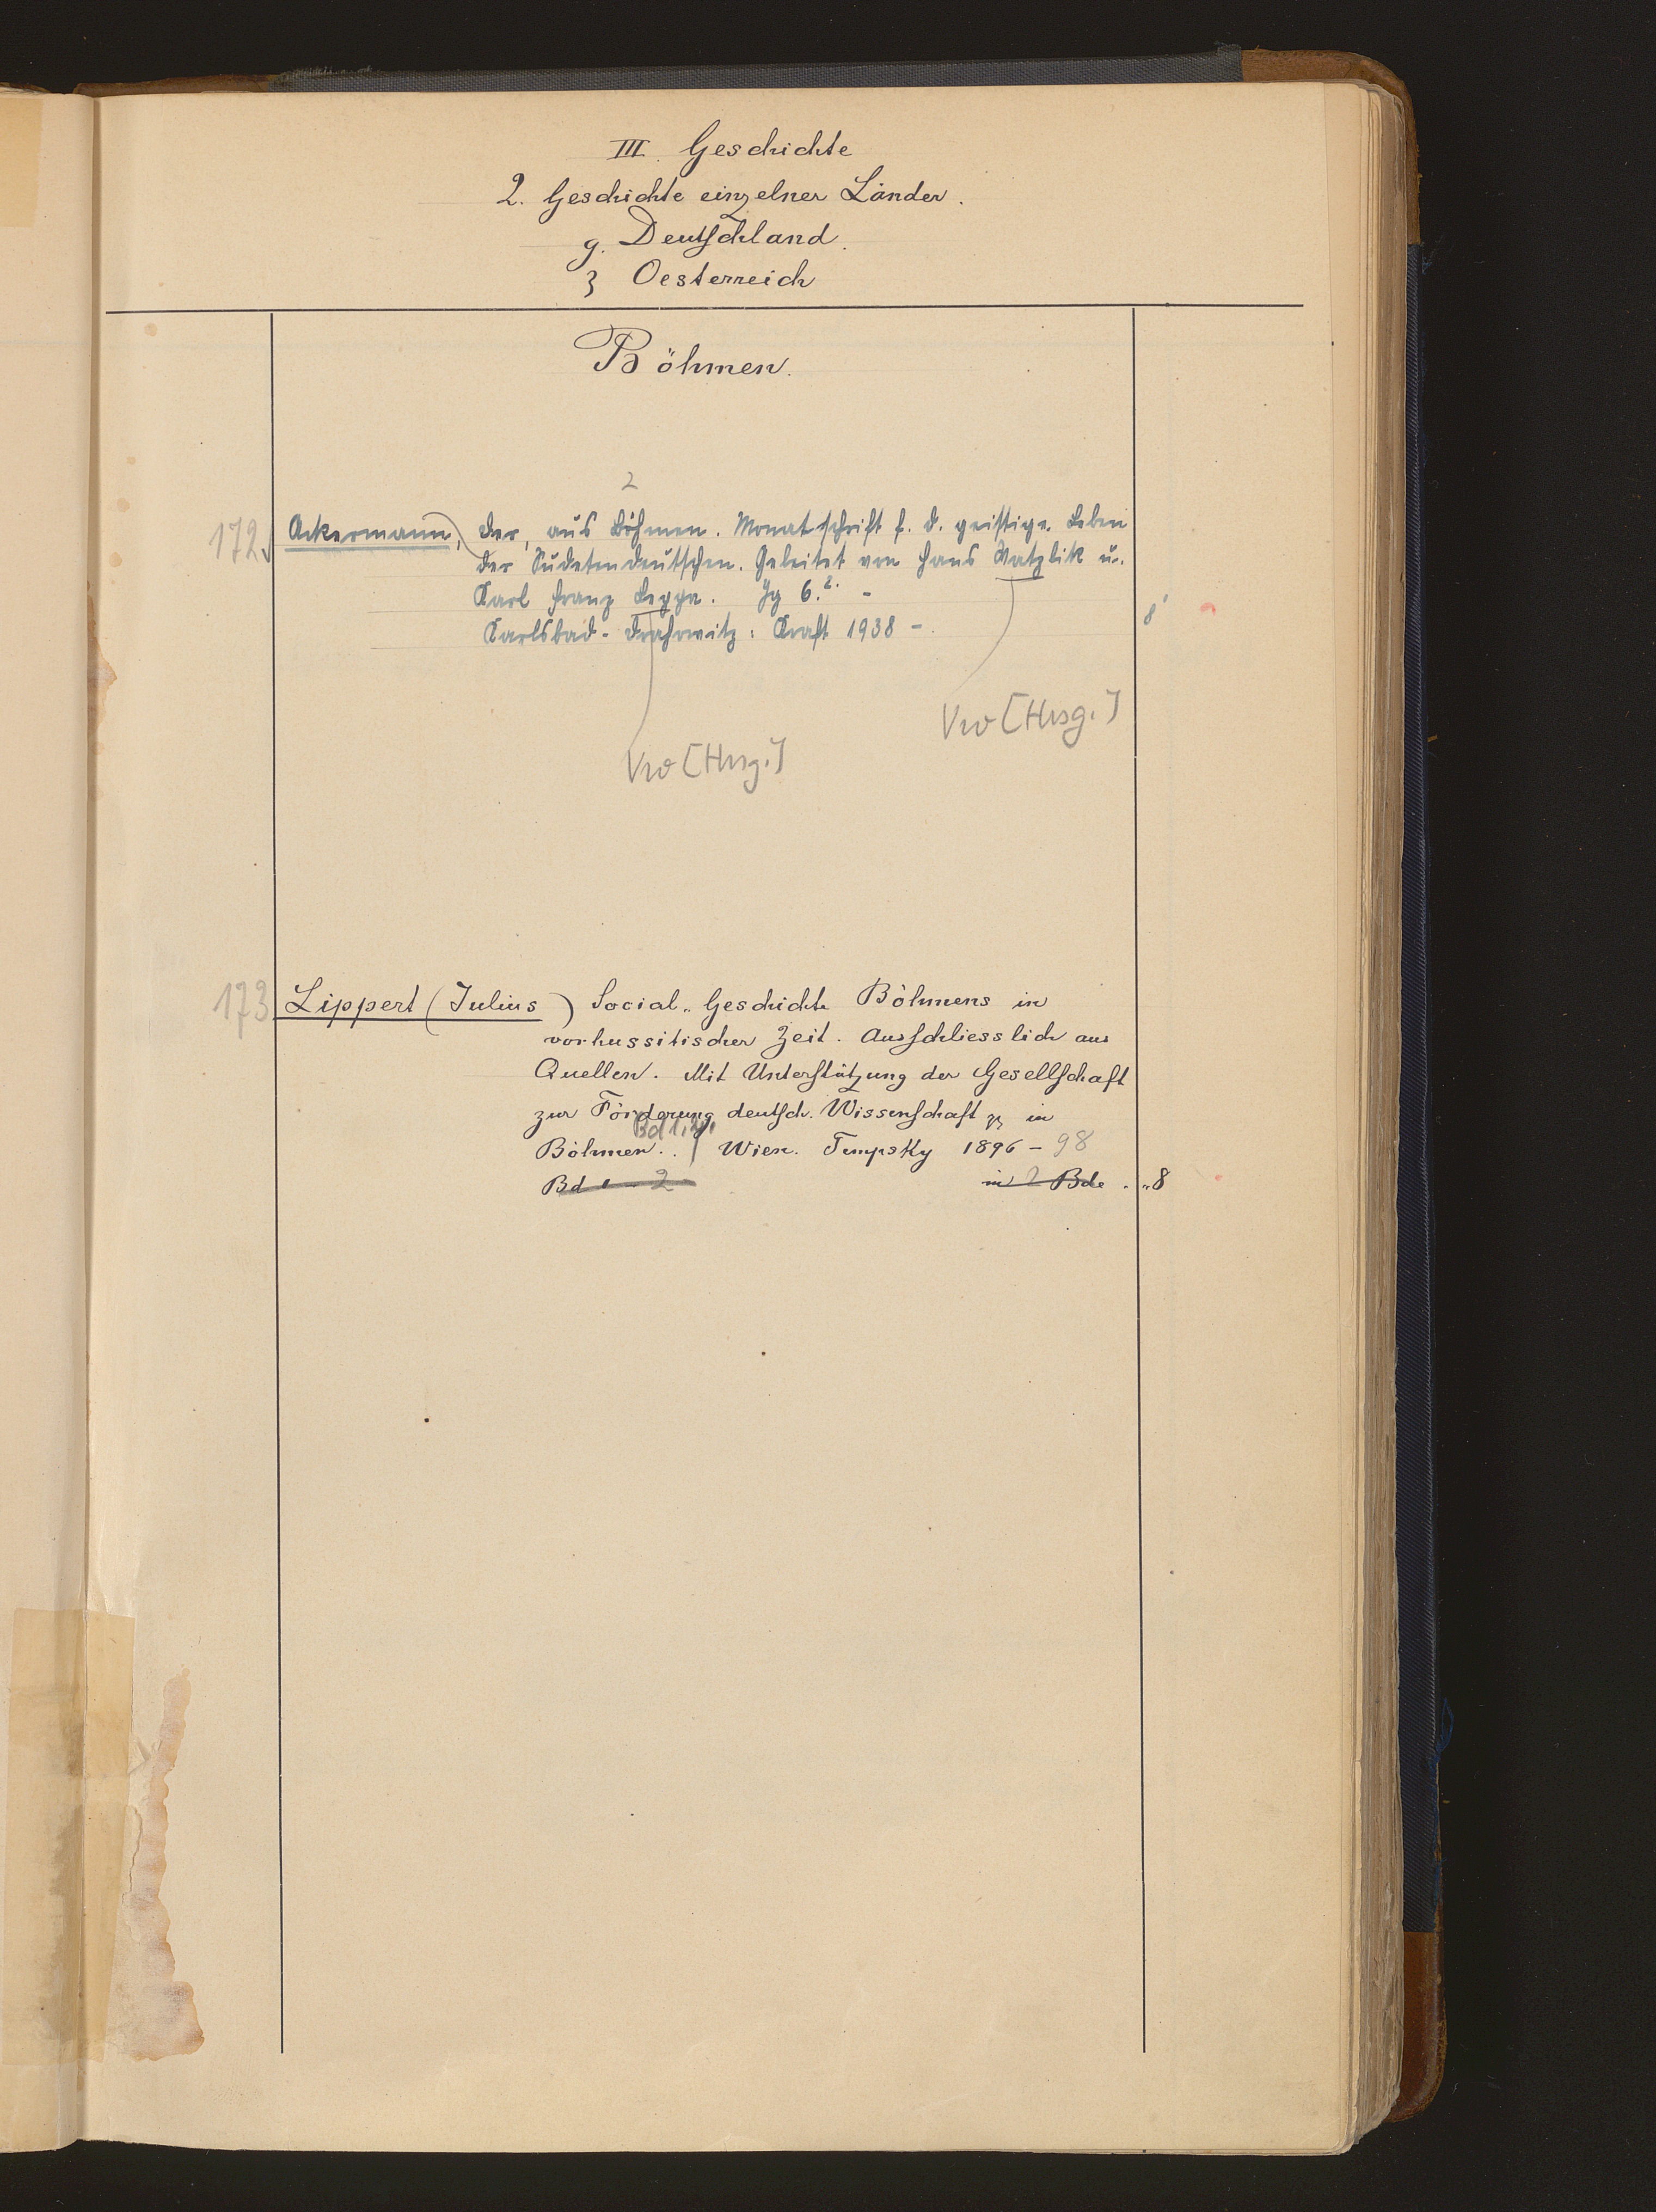 III. Geschichte
2. Geschichte einzelner Länder.
g. Deutschland.
3 Oesterreich
Böhmen.
2
172. Ackermann, der, aus Böhmen. Monatsschrift f. d. geistige Leben
der Sudetendeutschen. Geleitet von Hans Watzlik u.
Karl Franz Leppa. Jg 6.2. -
Karlsbad-Drahowitz: Kraft 1938 -. 8°
Vw [Hrsg.]
Vw [Hrsg.]
173 Lippert (Julius) Social-Geschichte Böhmens in
vorhussitischer Zeit. Ausschliesslich aus
Quellen. Mit Unterstützung der Gesellschaft
zur Förderung deutsch. Wissenschaft in
Bd 1, 2.
Böhmen. Wien. Tempsky 1896-98
Bd 1-2 in 2 Bde. 8